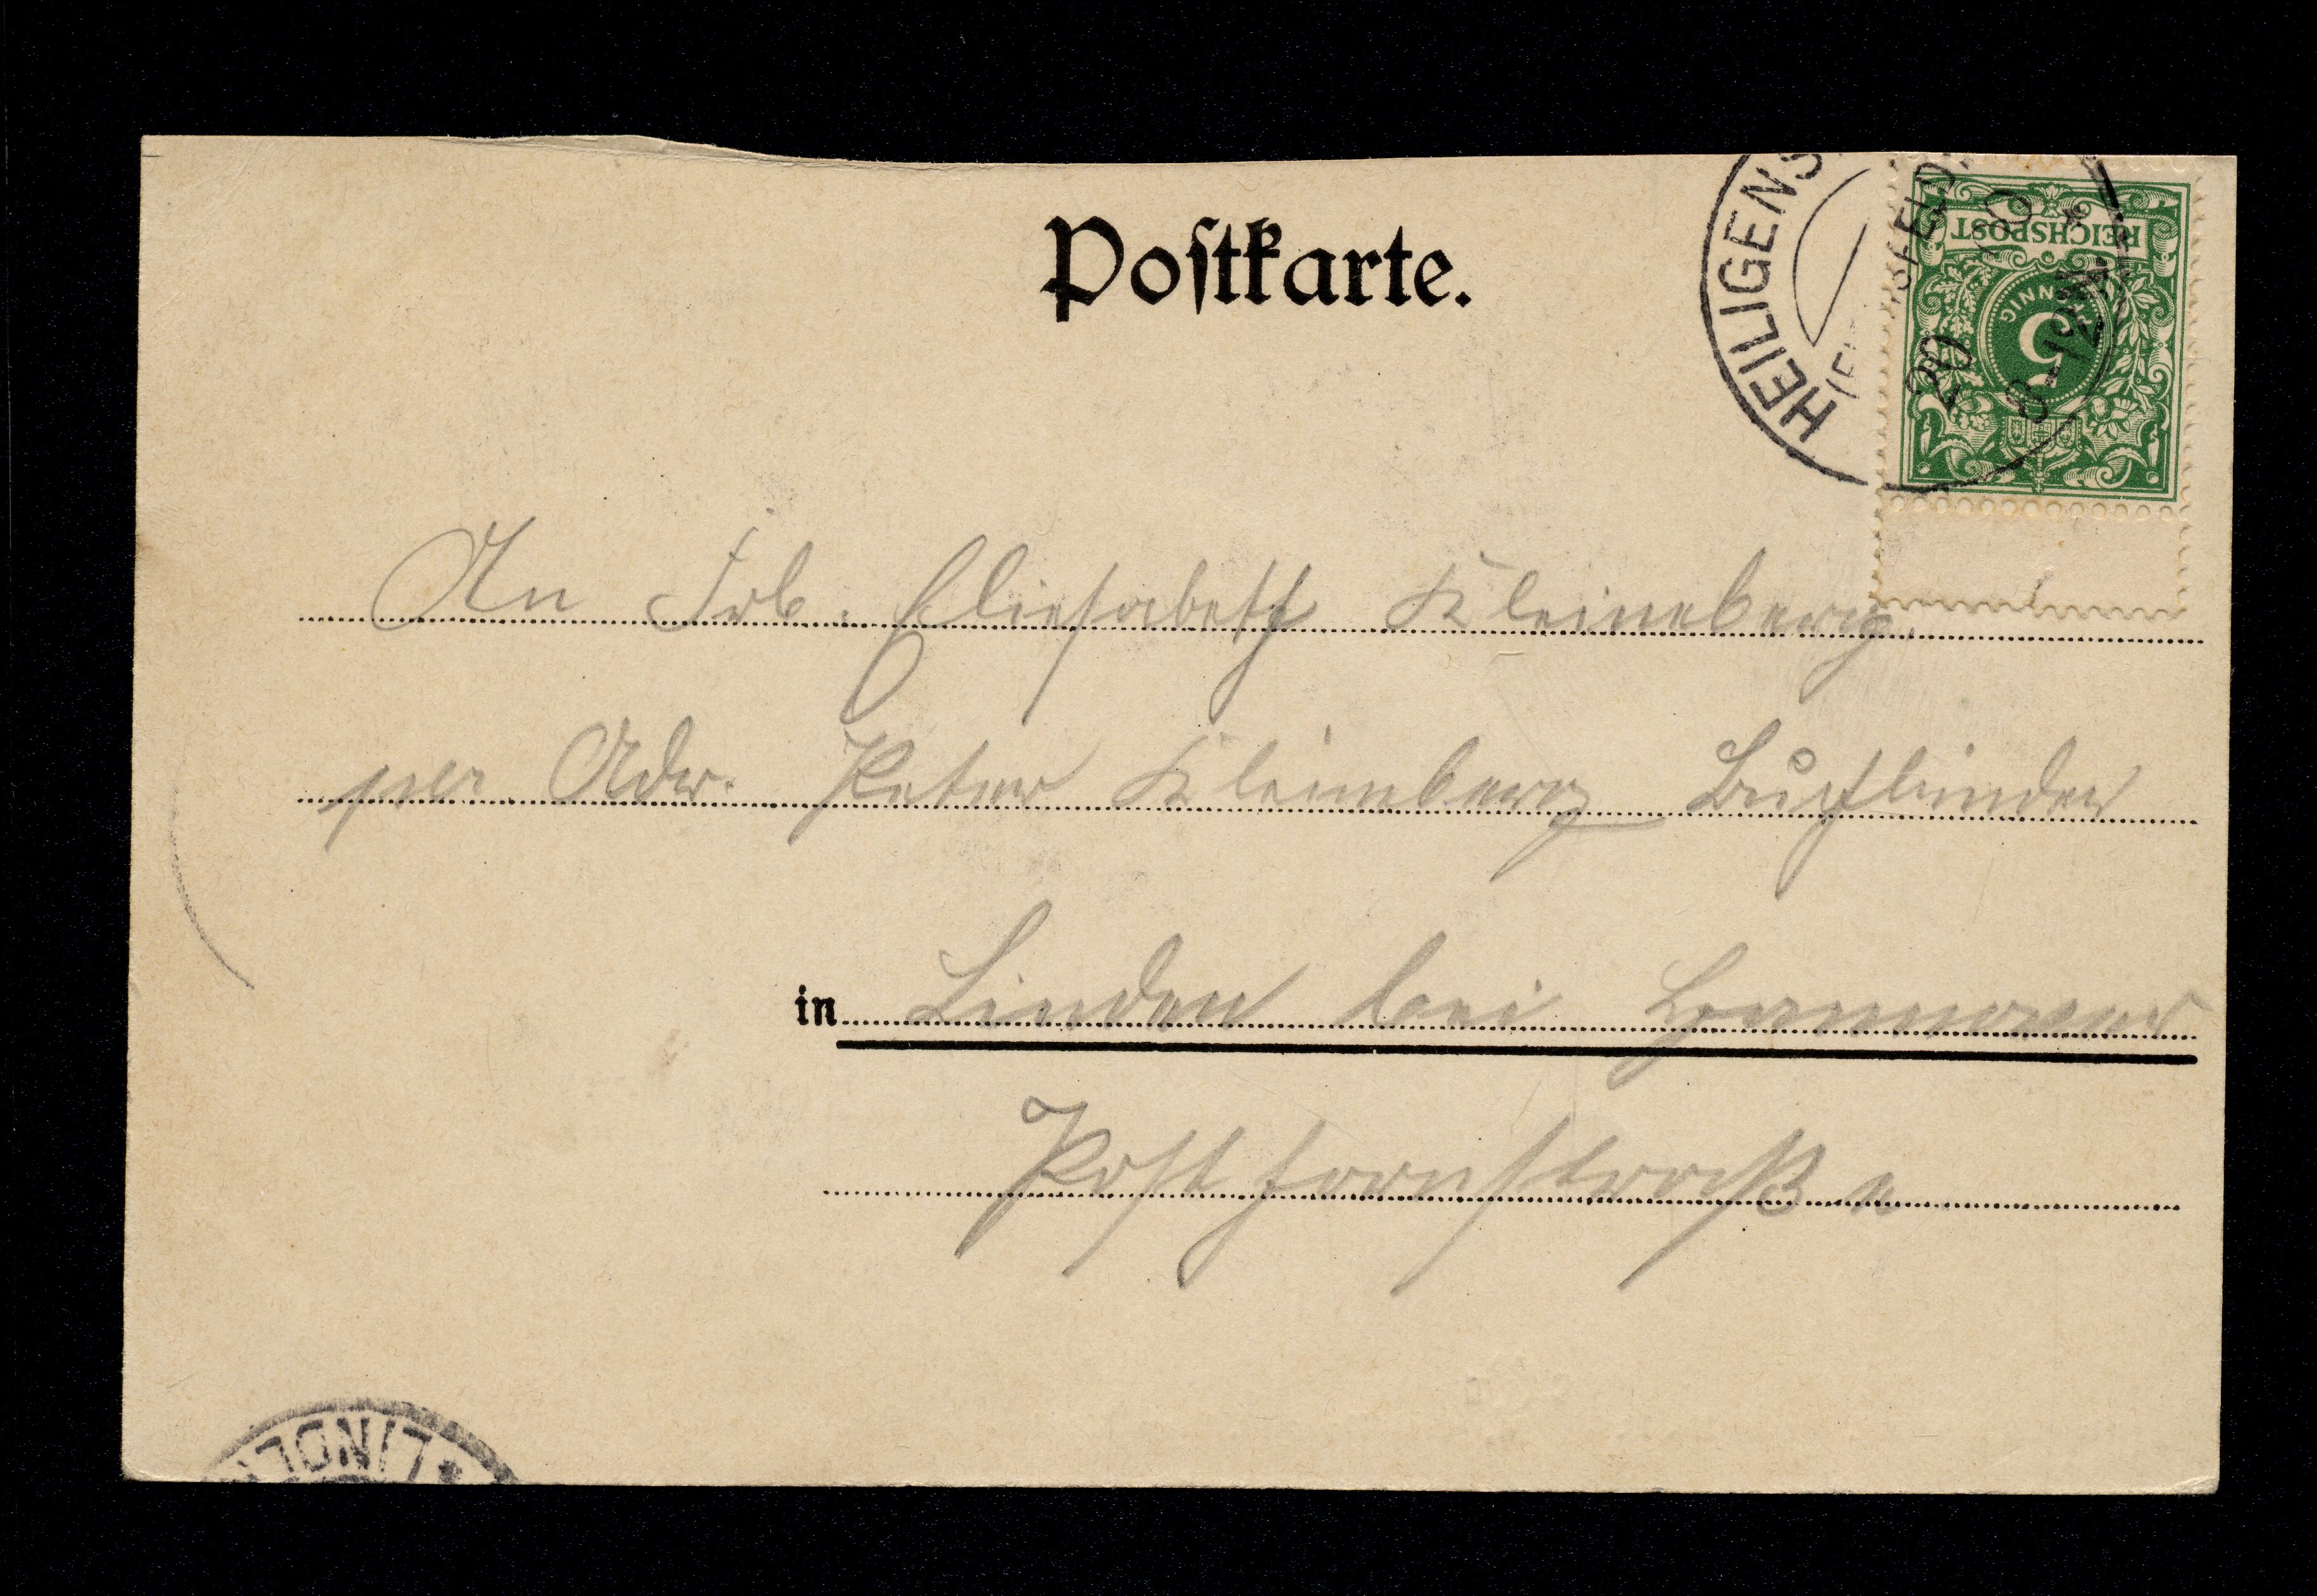 Poſtkarte.
HEILIGENS
REICHSPOST
5
20
8-12N
An Frl. Eliesabeth Kleineberg
per Adr. Peter Kleineberg Buchbinder
in Linden bei Hannover
Posthornstraße
LINDEN